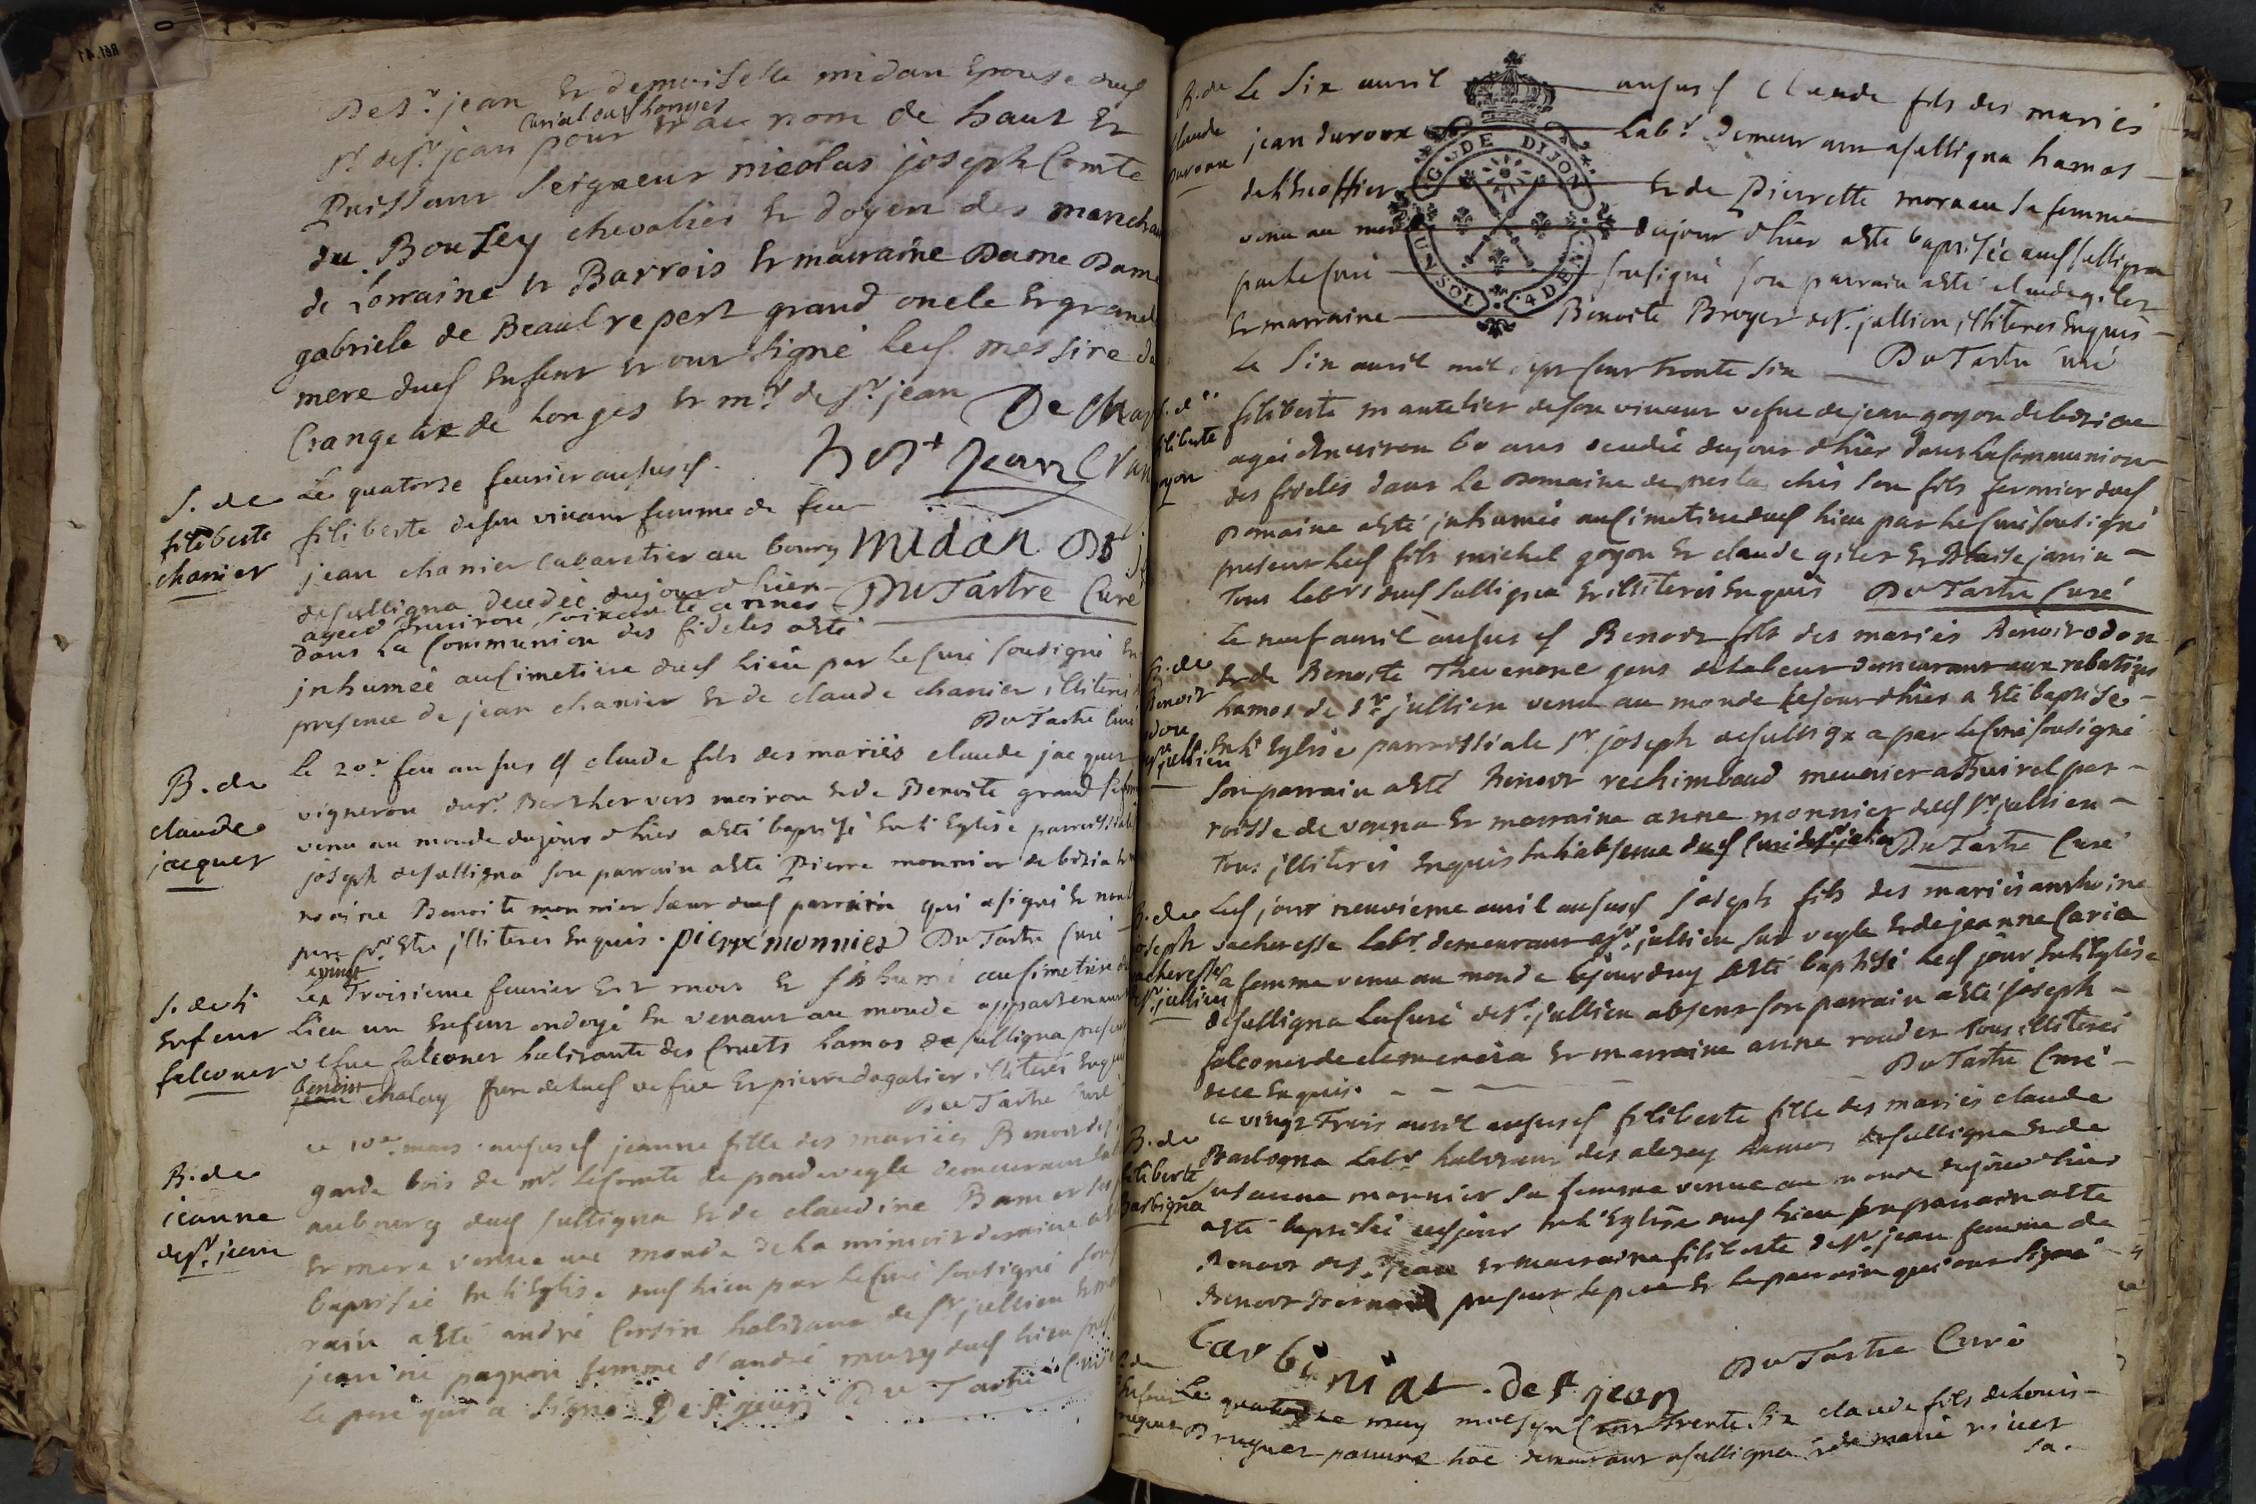 De St. jean Et demoiselle midan Epouse dud
Curial dud longes
Sr. de St. jean pour Et au nom de haut Et
Puissant Seigneur nicolas joseph Comte
du Bouzey chevalier Et doyen des marechaux
de Lorraine Et Barrois Et marraine Dame Dame
gabriele de Beaulrepert grand oncle Et grand
mere dud Enfant Et ont signé led. messire de
Crangeac de Longes Et mr. de St. jean De Cha
de St jean Cran
S. de
filiberte
chanier
Le quatorse feurier ausus d.
filiberte de son vivant femme de feu
jean chanier Cabaretier au bourg midan D St j
de sulligna decedeé du jour d'hier DuTartre Curé
ageé d'environ soixante annes
dans La Communion des fideles a Eté
jnhumeé au Cimetiere dud Lieu par Le Curé sousigné En
presence de jean chanier Et de claude chanier jlliterés
DuTartre Curé
B. de
claude
jacquet
Le 20e feu ausus d claude fils des mariés claude jacquet
vigneron du St. Berthet vers moiron Et de Benoite grand sa femme
venu au monde du jour d'hier a Eté baptisé En L'Eglise parroissiale
joseph de sulligna son parrain a Eté Pierre monnier de bisia Et
raine Benoite monnier sœur dud parrain qui a signé Et non
pere pour Etre jlliteres Enquis. pierre monnier DuTartre Curé
S. de L'
Enfant
falconet
vingt
Le Troisieme feurier Est mort Et jnhumé au Cimetiere de
Lieu un Enfant ondoyé En venant au monde appartenant
vefue falconet habitante des Cruets hamos de sulligna presens
benoist
chalay frere de Lad vefue Et pierre dagalier jlliterés Enquis
DuTartre Curé
B. de
jeanne
de St. jean
Le 10e mars ausus d jeanne fille des mariés Benoit de St
garde bois de mr. Le Comte de pondeveyle demeurant
au bourg dud sulligna Et de claudine Bamet ses
Et mere venue au monde de La minuit derniere a Eté
baptiseé En L'Eglise dud Lieu par Le Curé sousigné son
rain a Eté andré Corsin habitant de St. jullien Et mar
jeanne pagnon femme d'andré murzy dud Lieu presens
Le pere qui a signé De St jean DuTartre Curé
B. de
claude
duroux
Le Six auril ausus d Claude fils des mariés
jean duroux Labr. demeurant a sulligna hamos
de L'hieoffier Et de Pierrette moreau sa femme
venu au monde du jour d'hier a Eté baptisée aud sulligna
par Le Curé sousigné son parrain a Eté claude gilet
Et marraine Benoite Broyer de St. jullien jlliteres Enquis
DuTartre Curé
GDE DIJON
UN SOL 4 DE
S. de
filiberte
goyon
Le Six auril mil sept cent trente Six
filiberte mantelier de son vivant vefue de jean goyon de bisiae
ageé d'Environ 60 ans decedeé du jour d'hier dans La Communion
des fideles dans Le Domaine de mesta chés son fils fermier dud
Domaine a Eté jnhumeé au Cimetiere dud Lieu par Le Curé sousigné
presens Led fils michel goyon Et claude gilet Et Blaise janin
Tous Labrs dud sulligna Et jlliterés Enquis DuTartre Curé
B. de
Benoit
odon
St. jullien
Le neuf auril ausus d Benoit fils des mariés Benoit odon
Et de Benoite Thevenone gens de Labeur demeurant aux rebatines
hamos de St. jullien venu au monde Le jour d'hier a Eté baptisé
En L'Eglise parroissiale St. joseph de sulligna par Le Curé sousigné
son parrain a Eté Benoit rechimbaud meunier a Buirel par
roisse de vonna Et marraine anne monnier dud St. jullien
Tous jlliterés Enquis En L'absence dud Curé de St. julien DuTartre Curé
B. de
joseph
vacheresse
St. jullien
Led jour neuvieme auril ausus d joseph fils des mariés anthoine
vacheresse Labr. demeurant a St. jullien sur veyle Et de jeanne Caria
sa femme venu au monde Le jourduy a Eté baptisé Led jour En L'Eglise
de sulligna Le Curé de St. jullien absent son parrain a Eté joseph
falconet de clemencia Et marraine anne roudet Tous jlliterés
de ce Enquis. DuTartre Curé
B. de
filiberte
Barbigna
Ce vingt Trois auril ausus d filiberte fille des mariés claude
Barbigna Labr habitant des alezey hamos de sulligna Et de
Susanne monnier sa femme venue au monde du jour d'hier
a Eté baptiseé cejour En L'Eglise dud Lieu son parrain a Eté
Benoit de St. jean Et marraine filiberte de St. jean femme de
Benoit presens Le pere Et Le parrain qui ont signé
barbiniat De St jean DuTartre Curé
Le quatorze may mil sept Cent Trente Six claude fils de Louis
Bruguet pauvre demeurant a sulligna Et de marie nivet
sa.